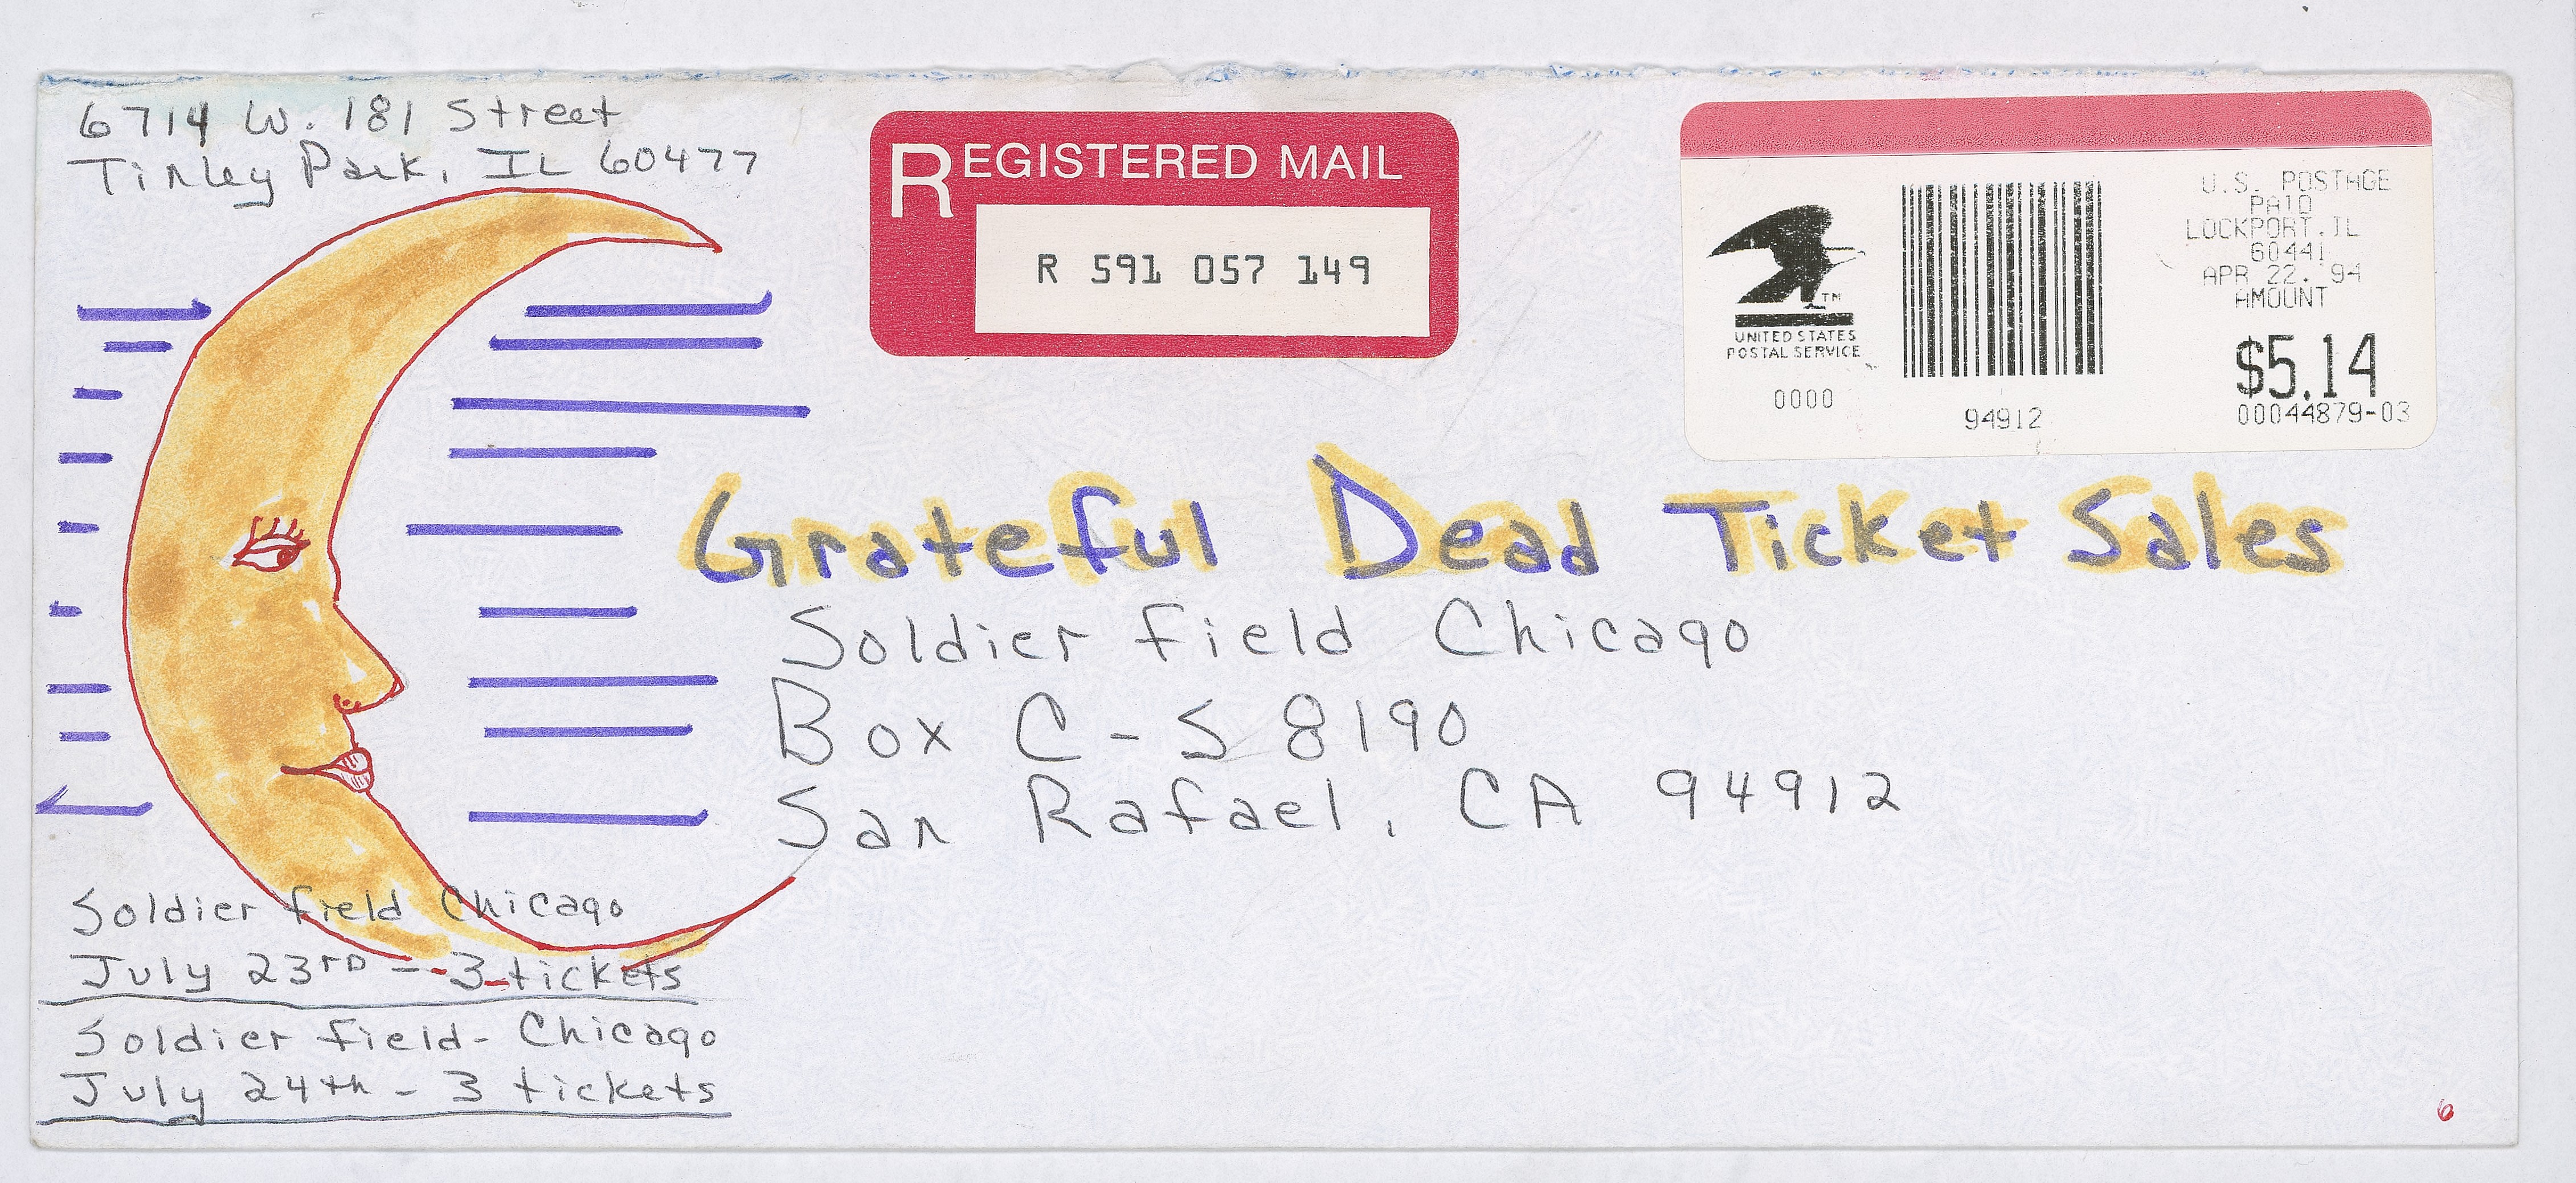 6714 W. 181 Street
Tinley Park, IL 60477
REGISTERED MAIL
R 591 057 149
U.S. POSTAGE
PAID
LOCKPORT, IL
60441
APR 22. 94
AMOUNT
$5.14
00044879-03
TM
UNITED STATES
POSTAL SERVICE
0000
94912
Grateful Dead Ticket Sales
Soldier Field Chicago
Box C-S 8190
San Rafael, CA 94912
Soldier Field Chicago
July 23RD - 3 tickets
Soldier Field - Chicago
July 24th - 3 tickets
6